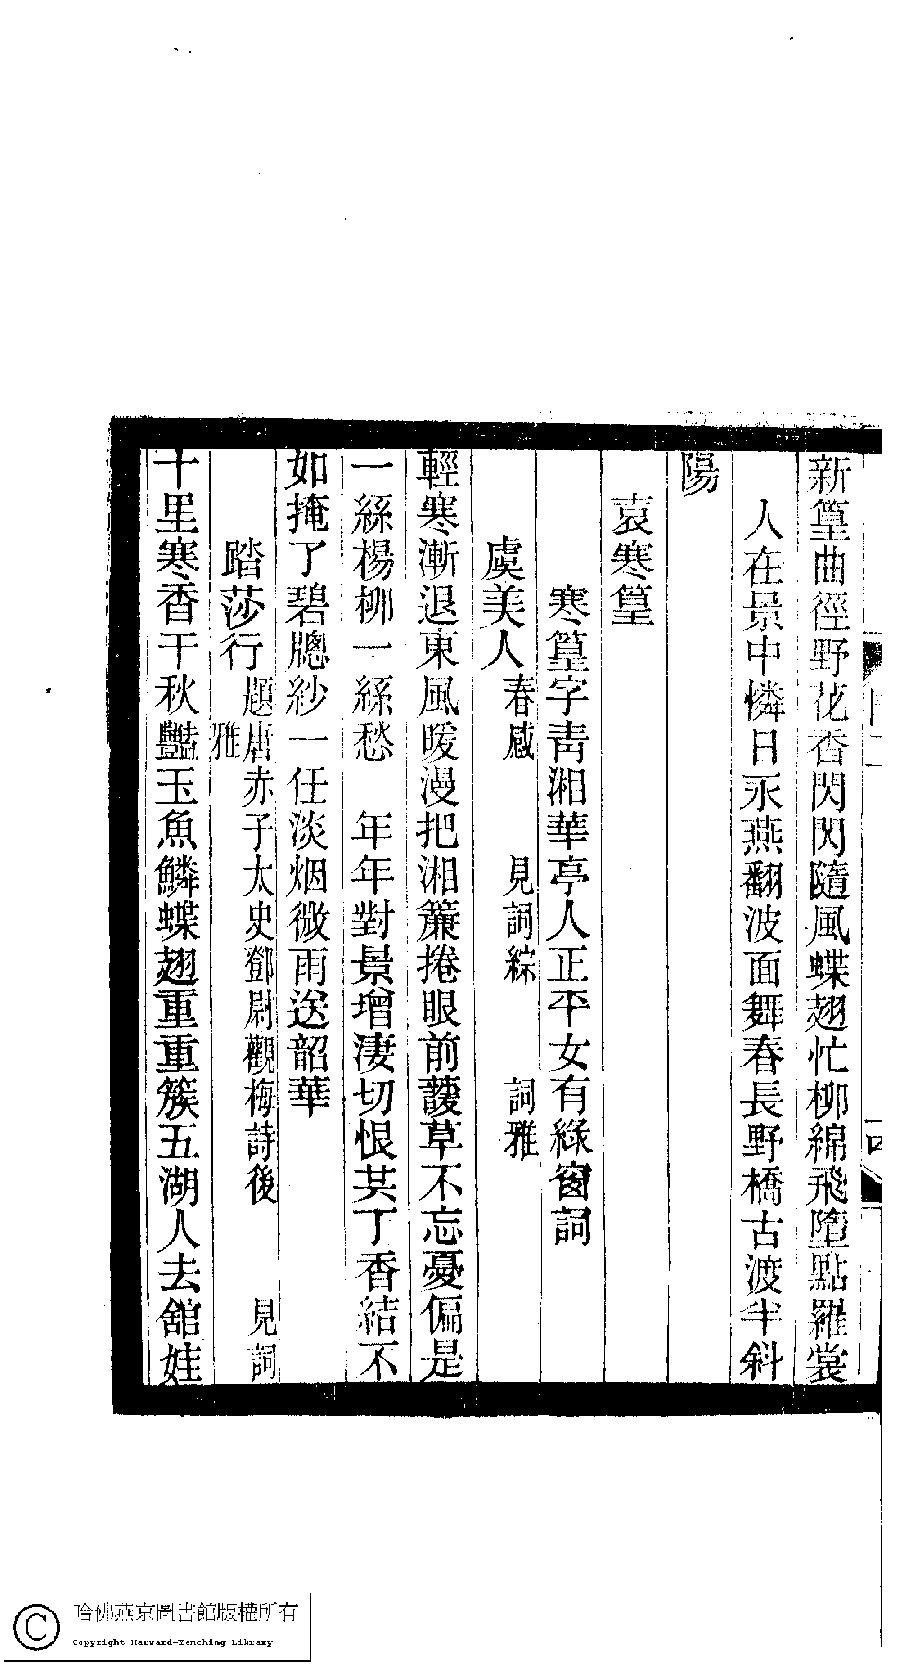 新篁曲徑野花香閃閃隨風蝶翅忙柳綿飛墮點羅裳
人在景中憐日永燕翻波面舞春長野橋古渡半斜
陽
袁寒篁
寒篁字青湘華亭人正平女有綠窗詞
虞美人 春感 見詞綜 詞雅
輕寒漸退東風暖漫把湘簾捲眼前諼草不忘憂偏是
一絲楊柳一絲愁 年年對景增凄切恨共丁香結不
如掩了碧牎紗一任淡烟微雨送韶華
踏莎行 題唐赤子太史鄧尉觀梅詩後 見詞
雅
十里寒香千秋豔玉魚鱗蝶翅重重簇五湖人去舘娃
哈佛燕京圖書館版權所有
Copyright Harvard-Yenching Library